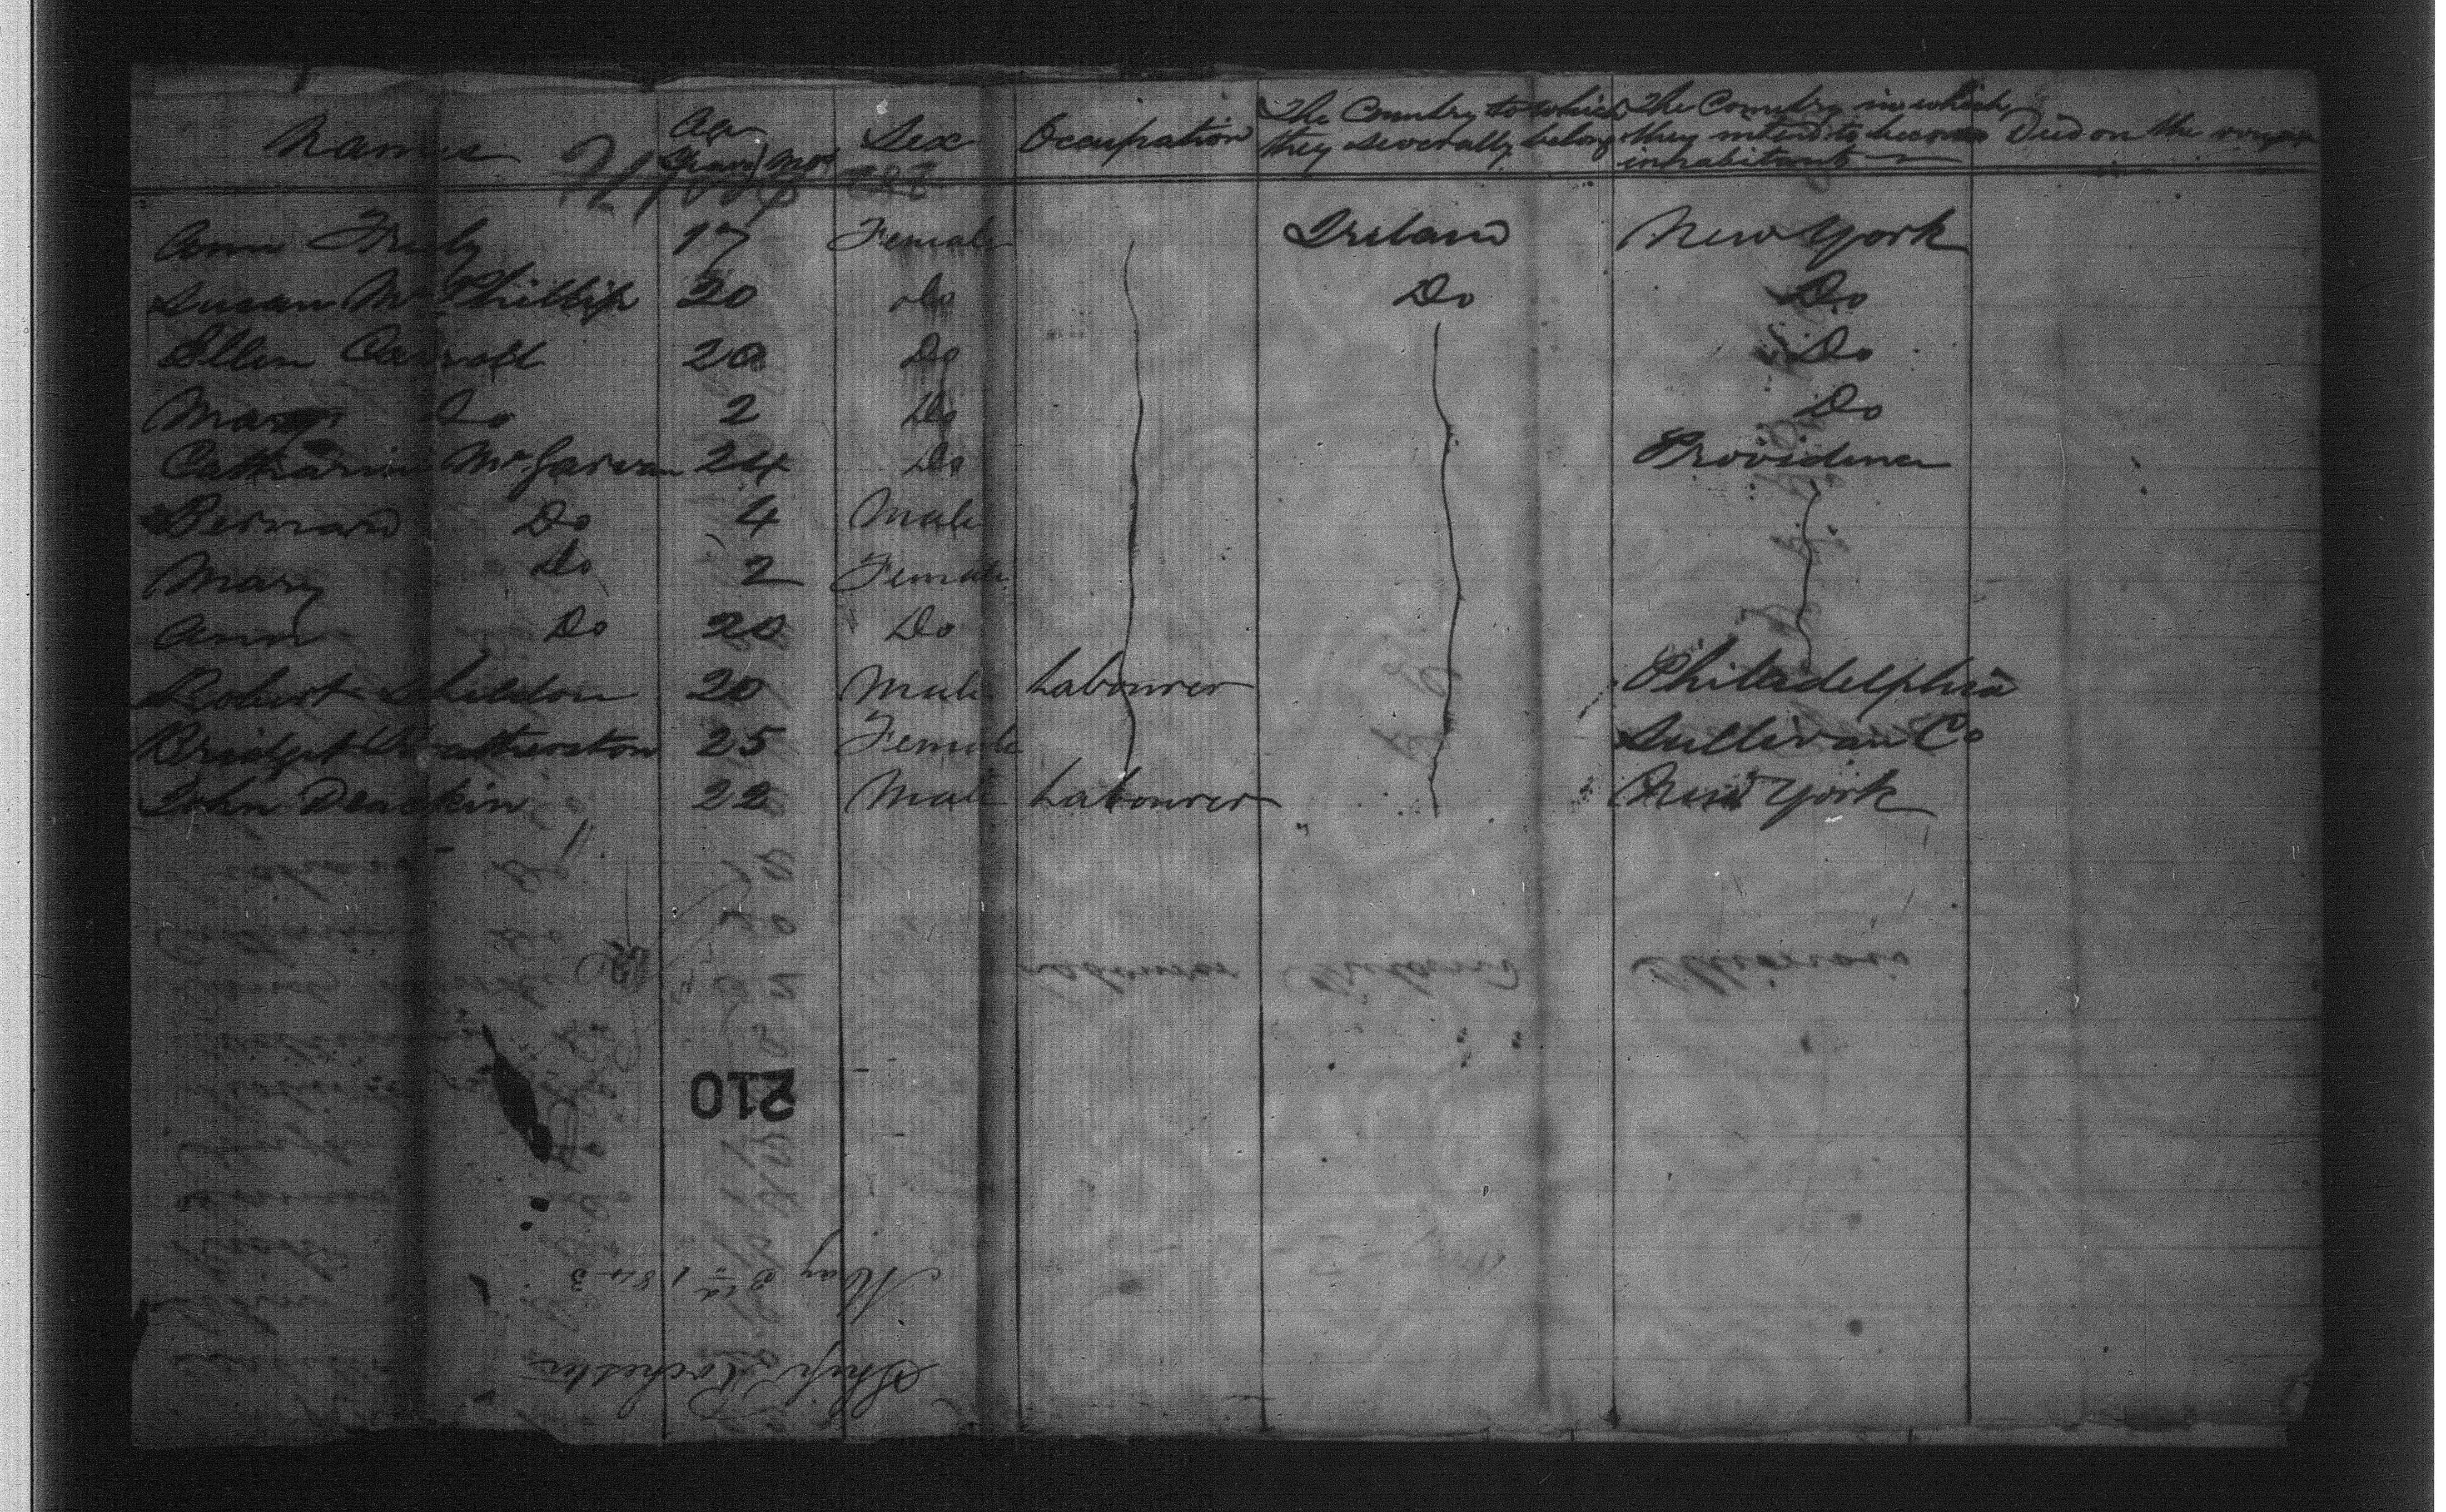 Names Age Sex Occupation The Country to which The Country in which
Years Mos they severally belong they intend to become Died on the voyage
inhabitants
Ann 17 Female Ireland New York
Susan McPhillip 20 Do Do Do
Ellen Carroll 20 Do Do
Mary Do 2 Do Do
Catharine McGarvan 24 Do Providence
Bernard Do 4 Male
Mary Do 2 Female
Ann Do 20 Do
Robert Sheldon 20 Male Labourer Philadelphia
Bridget 25 Female Sullivan Co
John Deackin 22 Male Labourer New York
210
May 3rd 1843
Ship Rochester